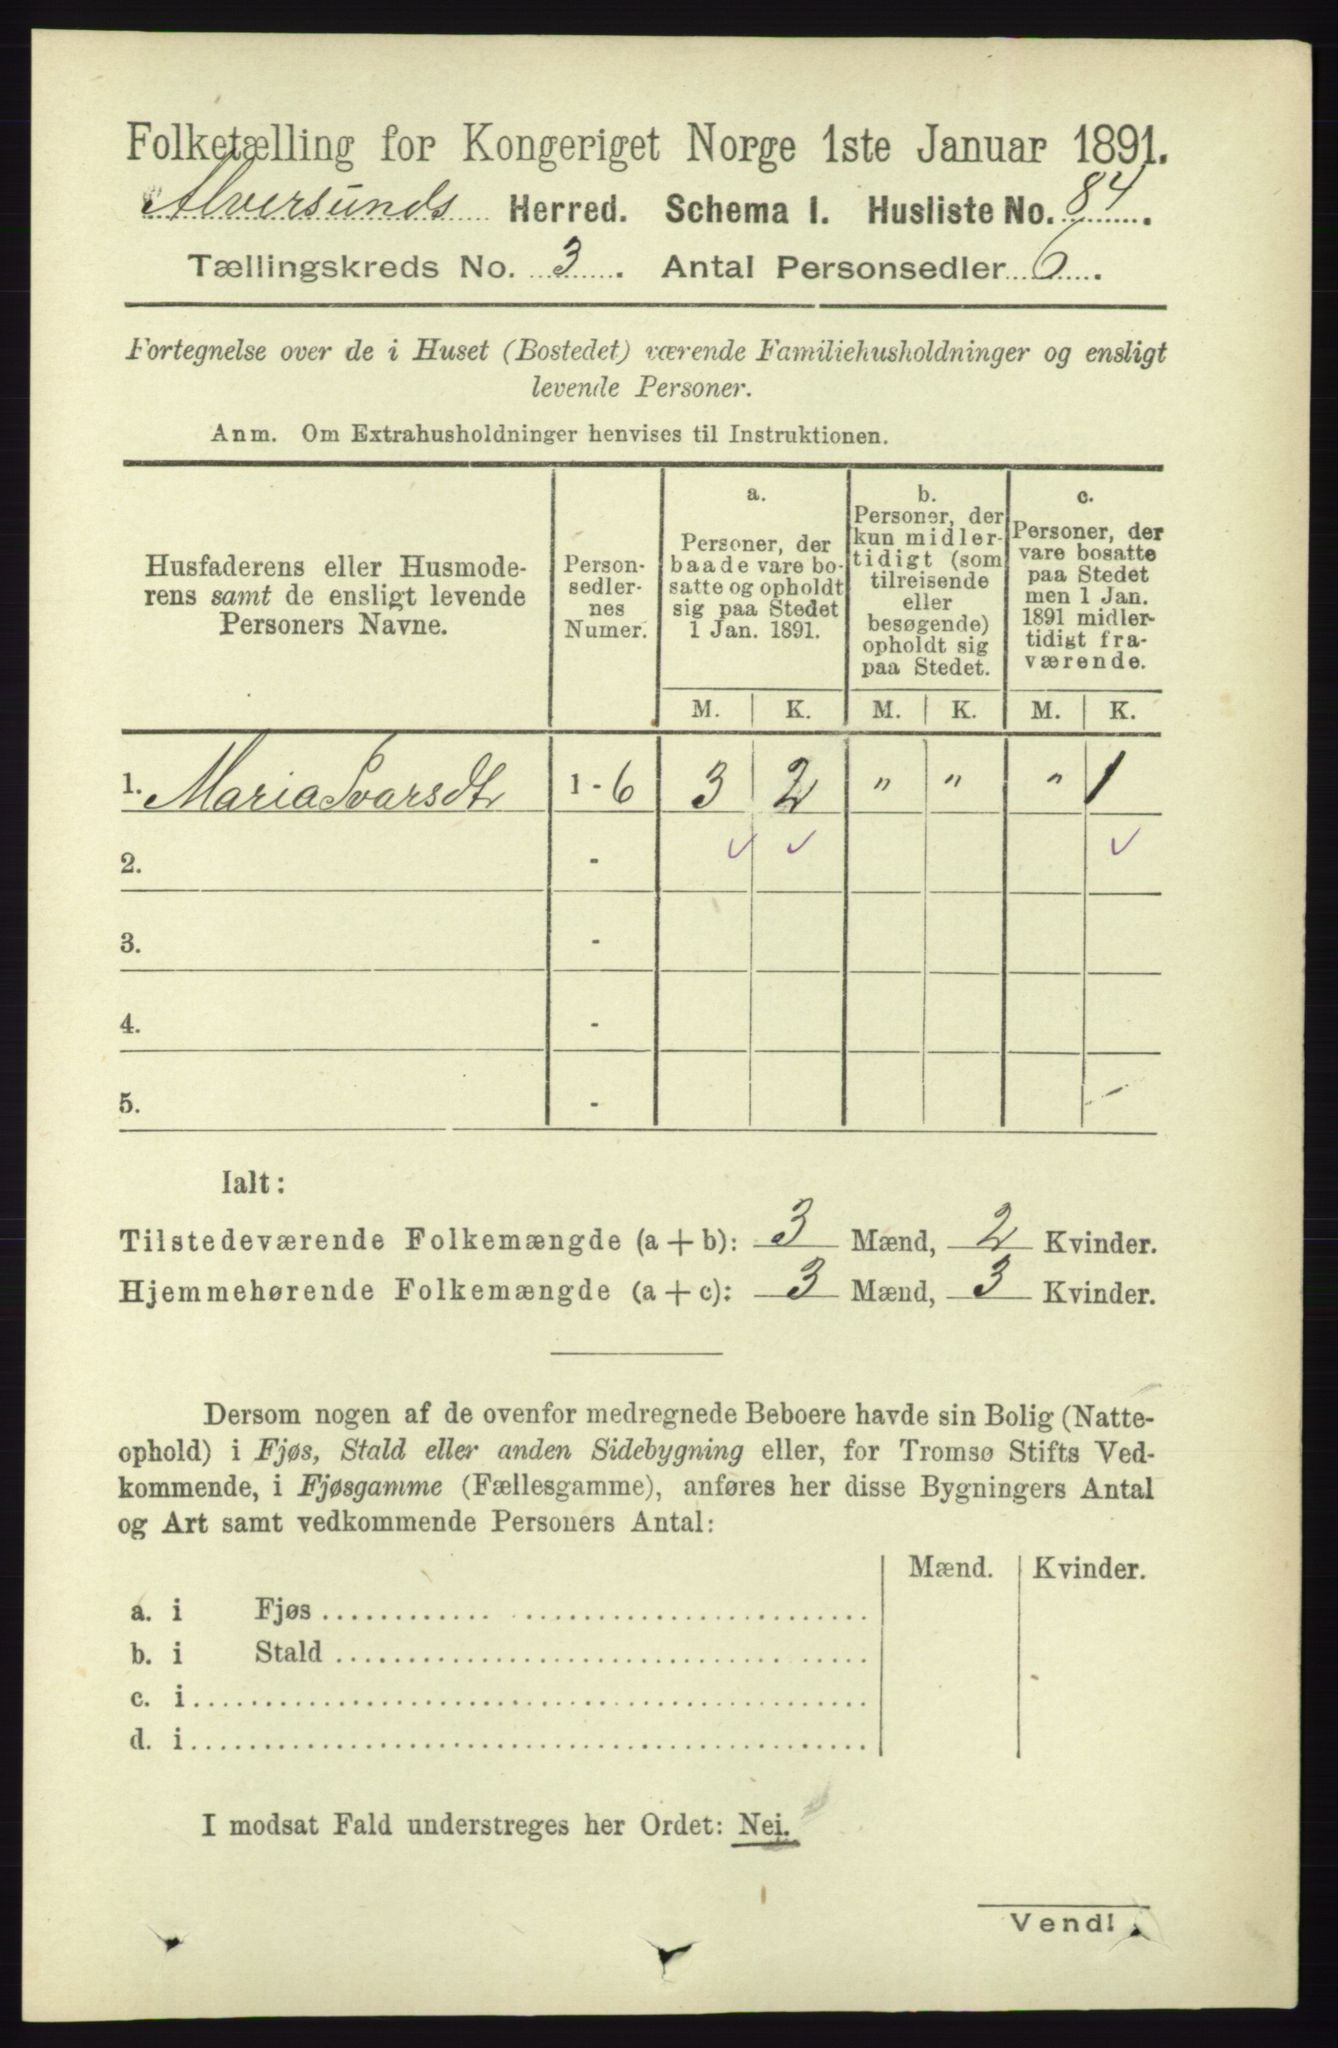 Folketælling for Kongeriget Norge 1ste Januar 1891.
Alversunds Herred. Schema I. Husliste No. 84.
Tællingskreds No. 3. Antal Personsedler 6.
Fortegnelse over de i Huset (Bostedet) værende Familiehusholdninger og ensligt
levende Personer.
Anm. Om Extrahusholdninger henvises til Instruktionen.
Husfaderens eller Husmode-
rens samt de ensligt levende
Personers Navne.
Person-
sedler-
nes
Numer.
a.
Personer, der
baade vare bo-
satte og opholdt
sig paa Stedet
1 Jan. 1891.
b.
Personer, der
kun midler-
tidigt (som
tilreisende
eller
besøgende)
opholdt sig
paa Stedet.
c.
Personer, der
vare bosatte
paa Stedet
men 1 Jan.
1891 midler-
tidigt fra-
værende.
M. K. M. K. M. K.
1. Maria Ivarsdtr 1 - 6 3 2 " " " 1
2. - ✓ ✓ ✓
3. -
4. -
5. -
Ialt:
Tilstedeværende Folkemængde (a + b): 3 Mænd, 2 Kvinder.
Hjemmehørende Folkemængde (a + c): 3 Mænd, 3 Kvinder.
Dersom nogen af de ovenfor medregnede Beboere havde sin Bolig (Natte-
ophold) i Fjøs, Stald eller anden Sidebygning eller, for Tromsø Stifts Ved-
kommende, i Fjøsgamme (Fællesgamme), anføres her disse Bygningers Antal
og Art samt vedkommende Personers Antal:
Mænd. Kvinder.
a. i Fjøs
b. i Stald
c. i
d. i
I modsat Fald understreges her Ordet: Nei.
Vend!